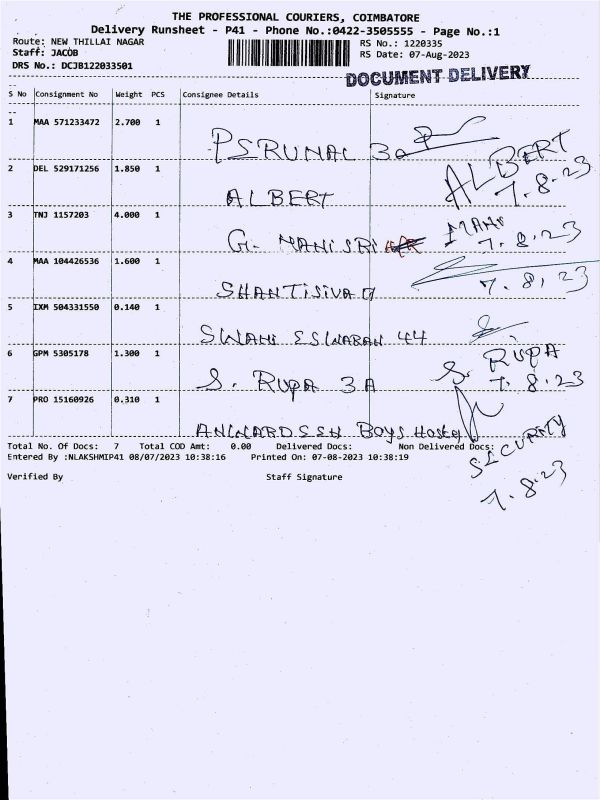 THE PROFESSIONAL COURIERS, COIMBATORE
Delivery Runsheet - P41 - Phone No.:0422-3505555 - Page No.:1
Route: NEW THILLAI NAGAR RS No.: 1220335
Staff: JACOB RS Date: 07-Aug-2023
DRS No.: DCJB122033501
DOCUMENT DELIVERY
S No Consignment No Weight PCS Consignee Details Signature
1 MAA 571233472 2.700 1
PSRUNAL 30
ALBERT
7.8.23
2 DEL 529171256 1.850 1
ALBERT
3 TNJ 1157203 4.000 1
G. MANISRI
MANI
7.8.23
4 MAA 104426536 1.600 1
SHANTISIVA
7.8.23
5 IXM 504331550 0.140 1
SWAMI ESWARAN 44
6 GPM 5305178 1.300 1
S. RUPA 3A
S. RUPA
7.8.23
7 PRO 15160926 0.310 1
Boys Hostel
Total No. Of Docs: 7 Total COD Amt: 0.00 Delivered Docs: Non Delivered Docs:
SECURITY
7.8.23
Entered By :NLAKSHMIP41 08/07/2023 10:38:16 Printed On: 07-08-2023 10:38:19
Verified By Staff Signature